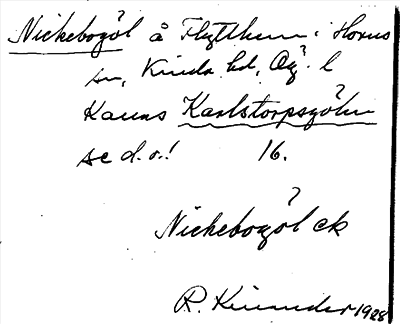 Nickebogöl å Flytthem i Horns
sn, Kinda hd, Ög. l
kanns Karlstorpsgöln
se d.o.! 16.
Nickebogöl ck
R. Kinander 1928